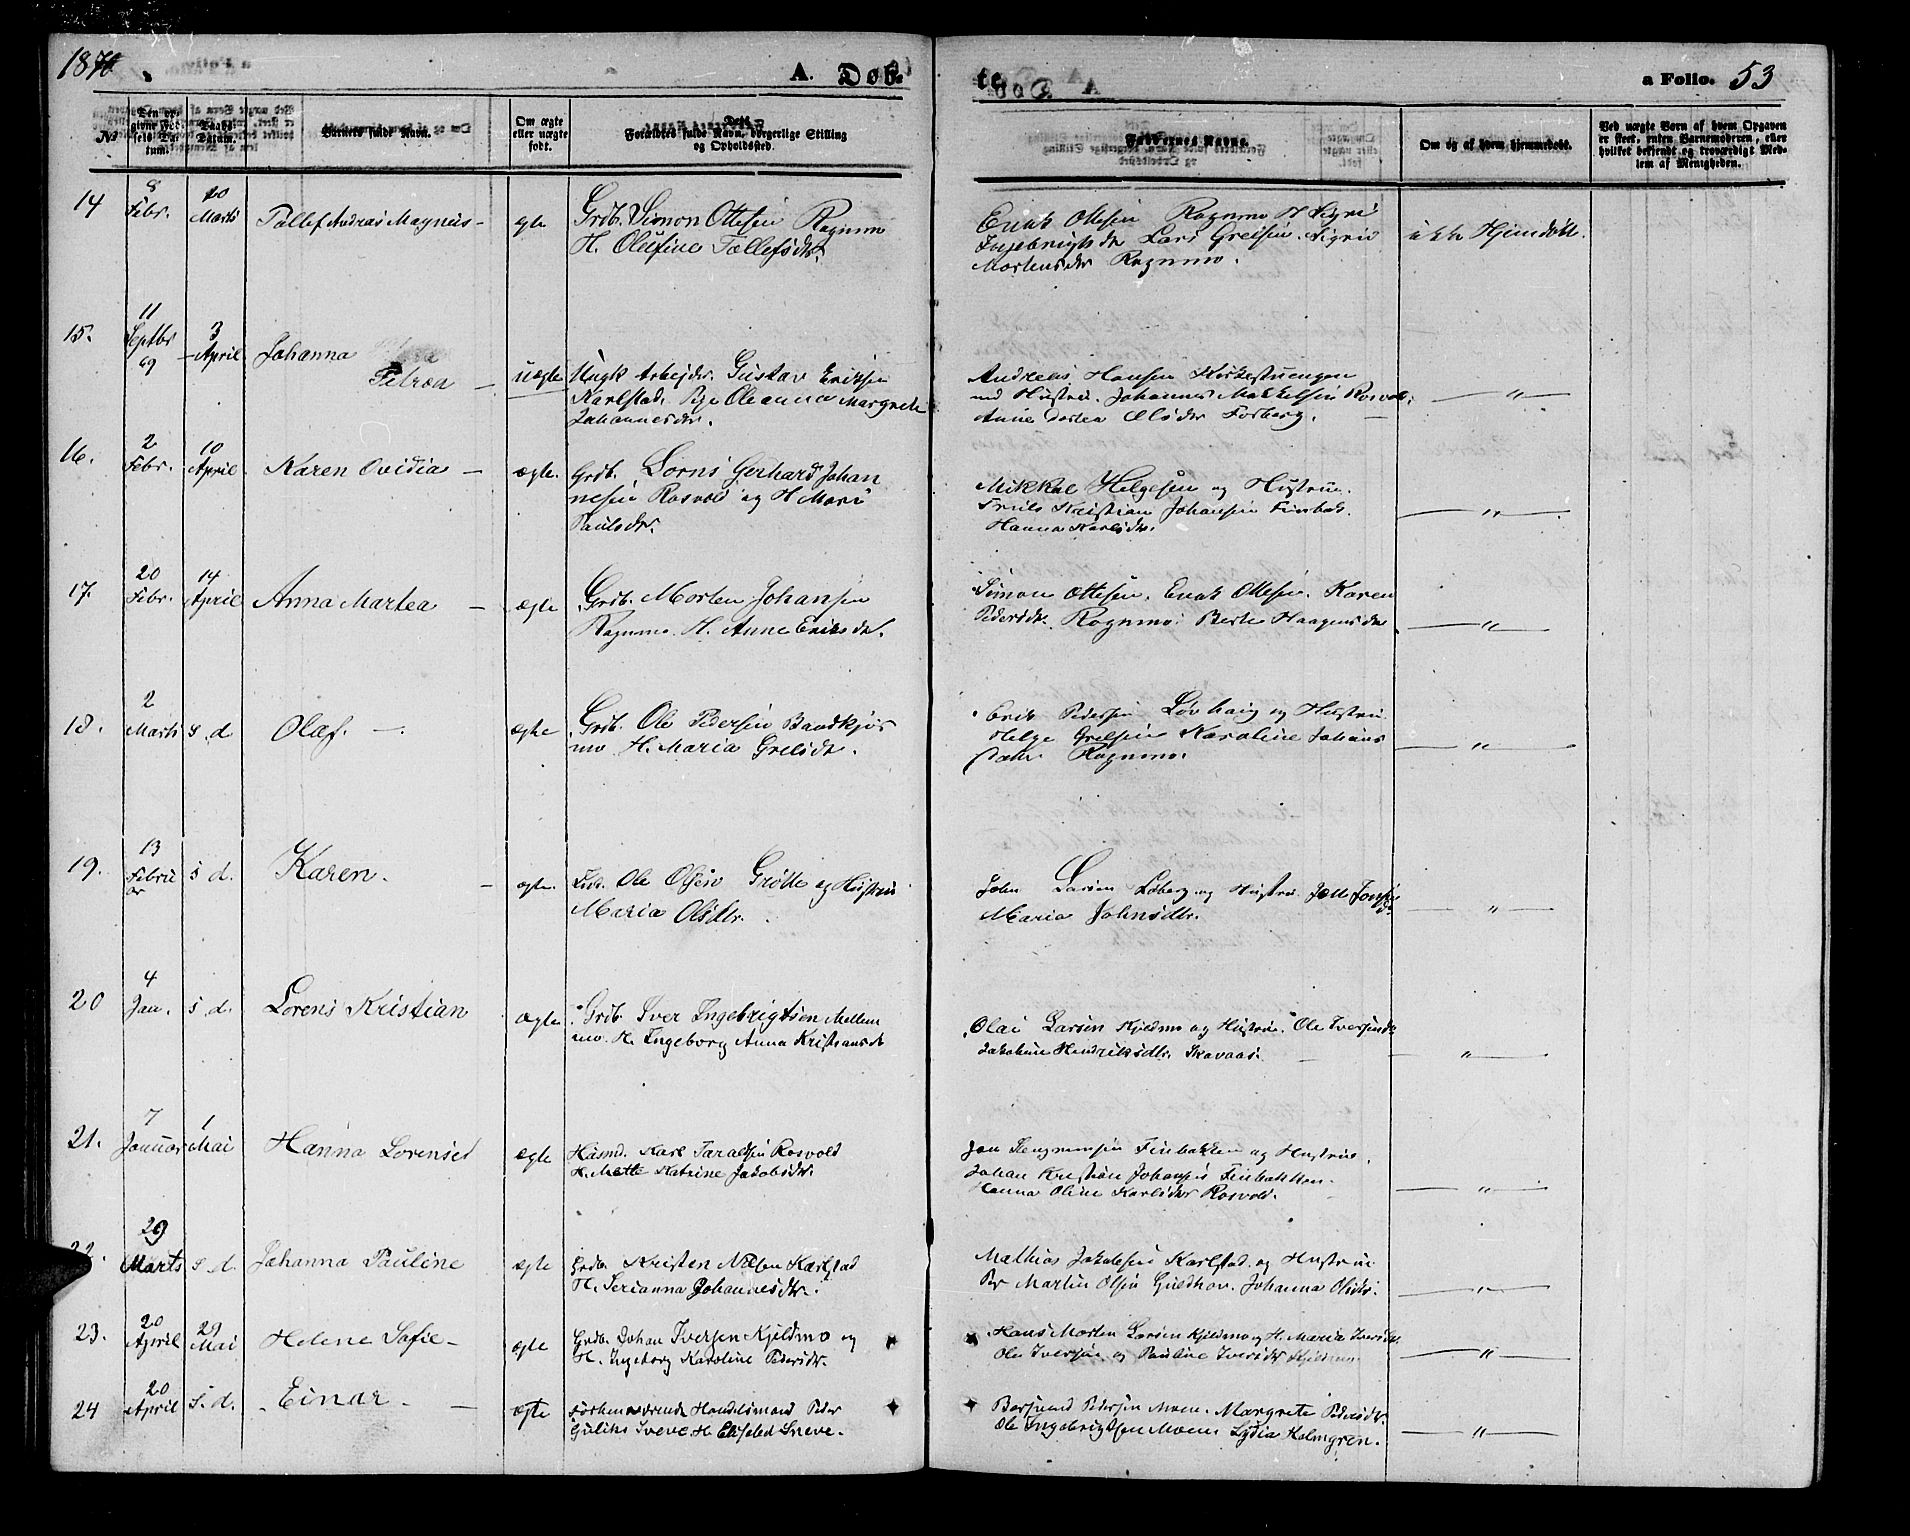 1870
A. Døb-
te.
a Folio. 53
No
Den opgivne Fødsels Datum.
Daabs-Datum.
Barnets fulde Navn.
Om ægte eller uægte født.
Forældres fulde Navn, borgerlige Stilling og Opholdssted.
Faddernes Navne.
Om og af hvem hjemmedøbt.
Ved uægte Børn af hvem Opgaven er skeet, enten Barnemoderen, eller hvilket bekjendt og troværdigt Medlem af Menigheden.
14
8 Febr.
20 Marts
Tollef Andreas Magnus -
ægte
Grdb. Simon Ottesen Rognmo
H. Olufine Tollefsdtr.
Enok Ottesen Rognmo H Sigri
Ingebrigtsdr Lars Grelsen. Sigrid
Mortensdtr Rognmo.
ikke Hjemdøbt.
15.
11 Septbr 69
3 April
Johanna
Petrea -
uægte
Ungk Arbejder. Gustav Eriksen
Karlstad. Pge Oleanna Margrete
Johannesdtr.
Andreas Hansen Kirkestuengen
med Hustru. Johannes Mikkelsen Rosvold
Anne Dortea Olsdtr Forberg.
— " —
16.
2 Febr.
10 April
Karen Ovidia -
ægte.
Grdb. Lorns Gerhard Johan
nesen Rosvold og H Mari
Paulsdtr.
Mikkal Helgesen og Hustru.
Kristian Johansen Finbak.
Hanna Karlsdtr.
— " —
17.
20 Febr.
14 April
Anna Martea -
ægte
Grdb. Morten Johansen
Rognmo. H. Anne Eriksdtr.
Simon Ottesen. Enok Ottesen. Karen
Pedersdtr. Rognmo. Berte Haagensdtr
— " —
18.
2 Marts
s. d
Olaf. -
ægte
Grdb. Ole Pedersen Bandkjør
mo. H. Maria Grelsdtr.
Erik Pedersen Løvhaug og Hustru.
Helge Grelsen Karoline Johans
datter Rognmo.
— " —
19.
13 Februar
s d.
Karen. -
ægte.
Ind. Ole Olsen Grøtte og Hustru
Maria Olsdtr.
John Larsen Løberg og Hustru.
Maria Johnsdtr.
— " —
20
4 Jan.
s. d.
Lorens Kristian
ægte
Grdb Iver Ingebrigtsen Mellem
mo. H. Ingeborg Anna Kristiansdt
Olai Larsen Kjeldmo og Hustru. Ole Iversen
Jakobine Hendriksdtr. Skavaas.
— " —
21.
7 Januar
1 Mai
Hanna Lorense
ægte
Husmd. Karl Taraldsen Rosvold
H. Mette Katrine Jakobsdtr.
Jon Finbakken og Hustru.
Johan Kristian Johansen Finbakken.
Hanna Oline Karlsdtr Rosvold.
— " —
22.
29 Marts
s. d.
Johanna Pauline
ægte
Grdb. Kristen Nilsen Karlstad
H. Serianna Johannesdtr.
Mathias Jakobsen Karlstad og Hustru
Per Martin Olsen Guldhav. Johanna Olsdtr.
— " —
23.
20 April
29 Mai
Helene Sofie -
ægte
Grdb. Johan Iversen Kjeldmo og
H. Ingeborg Karoline Pedersdtr.
Hans Morten Larsen Kjeldmo og H. Maria Iversdtr
Ole Iversen og Pauline Iversdtr Kjeldmo
— " —
24
20 April
s. d.
Einar -
ægte
Forhenværende Handelsmand Peder
Gulik Sveve H. Elisebed Sneve.
Bersvend Pedersen Moen. Margrete Pedersdtr.
Ole Ingebrigtsen Moen Lydia Holmgren.
— " —